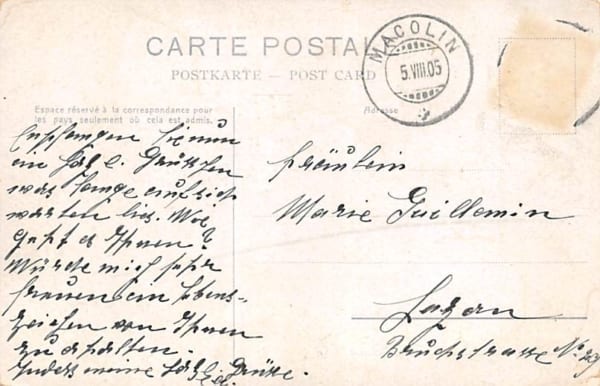 CARTE POSTAL
POSTKARTE — POST CARD
MACOLIN
5.VIII.05
Espace réservé à la correspondance pour
les pays seulement où cela est admis.
Adresse
Empfangen Sie nun
ein herzl. Grüsschen
was lange auf sich
warten lies. Wie
geht es Ihnen?
Würde mich sehr
freuen ein Lebens-
zeichen von Ihnen
zu erhalten.
Indess meine herzl. Grüsse.
Fräulein
Marie Guillemin
Luzern
Bruchstrasse No